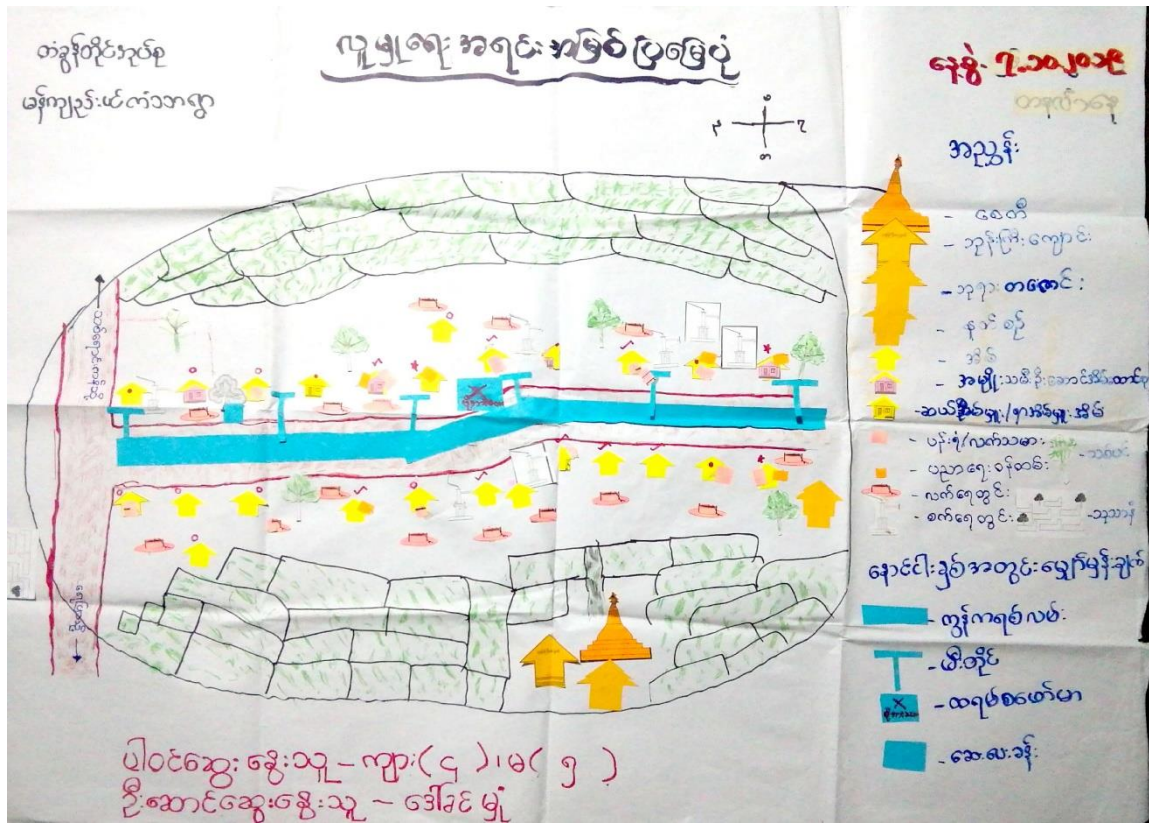 တံခွန်တိုင်အုပ်စု
မန်ကျည်းယင်ကံသာရွာ
လူမှုရေးအရင်းအမြစ်ပြမြေပုံ
နေ့စွဲ - ၇.၁၀.၂၀၁၉
တနင်္လာနေ့
အညွှန်း
- စေတီ
- ဘုန်းကြီးကျောင်း
- ဘုရားတဇောင်း
- နတ်စဉ်
- အိမ်
- အမျိုးသမီးဦးဆောင်အိမ်ထောင်စု
- ဆယ်အိမ်မှူး/ရာအိမ်မှူးအိမ်
- ပန်းရံ/လက်သမား
- သစ်ပင်
- ပညာရေးဝန်ထမ်း
- လက်ရေတွင်း
- စက်ရေတွင်း
- သုသာန်
နောင်ငါးနှစ်အတွင်းမျှော်မှန်းချက်
- ကွန်ကရစ်လမ်း
- မီးတိုင်
- ထရမ်စဖော်မာ
- ဆေးပေးခန်း
ပါဝင်ဆွေးနွေးသူ - ကျား(၄)၊ မ(၅)
ဦးဆောင်ဆွေးနွေးသူ - ဒေါ်ခင်မှုံ